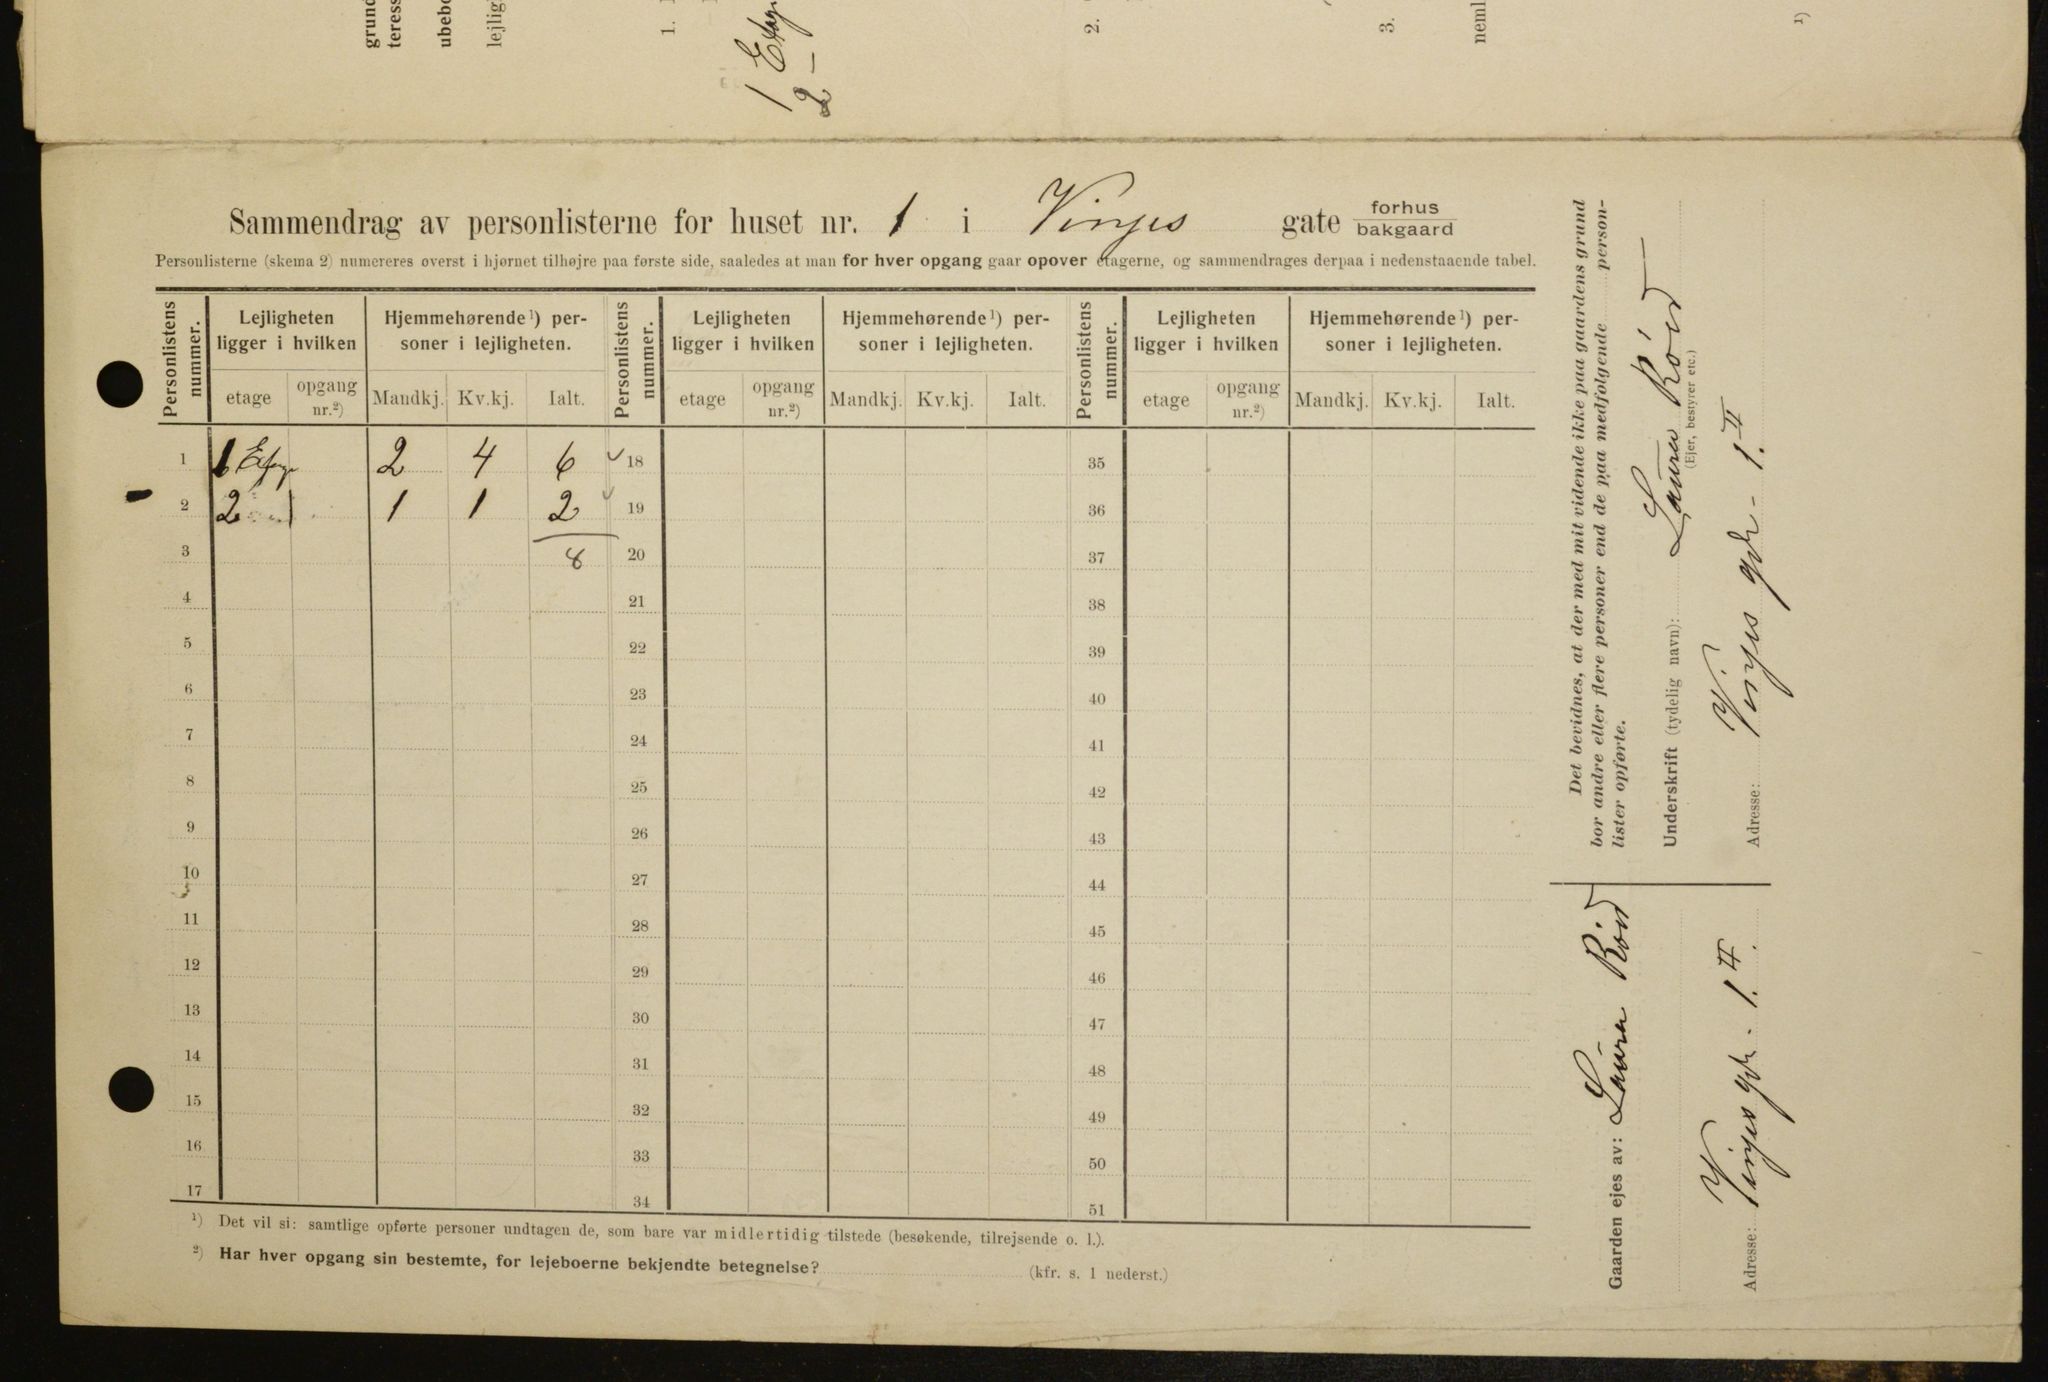 grund
teress
ubebo
lejlig
1.
1 Etage
2 —
2.
3.
neml
1)
Sammendrag av personlisterne for huset nr. 1 i Vinjes gate forhus
bakgaard
Personlisterne (skema 2) numereres øverst i hjørnet tilhøjre paa første side, saaledes at man for hver opgang gaar opover etagerne, og sammendrages derpaa i nedenstaaende tabel.
Personlistens nummer. Lejligheten ligger i hvilken Hjemmehørende 1) personer i lejligheten. Personlistens nummer. Lejligheten ligger i hvilken Hjemmehørende 1) personer i lejligheten. Personlistens nummer. Lejligheten ligger i hvilken Hjemmehørende 1) personer i lejligheten.
etage opgang nr.2) Mandkj. Kv.kj. Ialt. etage opgang nr.2) Mandkj. Kv.kj. Ialt. etage opgang nr.2) Mandkj. Kv.kj. Ialt.
1 1 Etage 2 4 6 18 35
2 2 1 1 2 19 36
3 8 20 37
4 21 38
5 22 39
6 23 40
7 24 41
8 25 42
9 26 43
10 27 44
11 28 45
12 29 46
13 30 47
14 31 48
15 32 49
16 33 50
17 34 51
1) Det vil si: samtlige opførte personer undtagen de, som bare var midlertidig tilstede (besøkende, tilrejsende o. l.).
2) Har hver opgang sin bestemte, for lejeboerne bekjendte betegnelse? (kfr. s. 1 nederst.)
Det bevidnes, at der med mit vidende ikke paa gaardens grund
bor andre eller flere personer end de paa medfølgende person-
lister opførte.
Underskrift (tydelig navn): Laura Röd
(Ejer, bestyrer etc.)
Adresse: Vinjes gde - 1. II
Gaarden ejes av: Laura Röd
Adresse: Vinjes gde. 1. II.